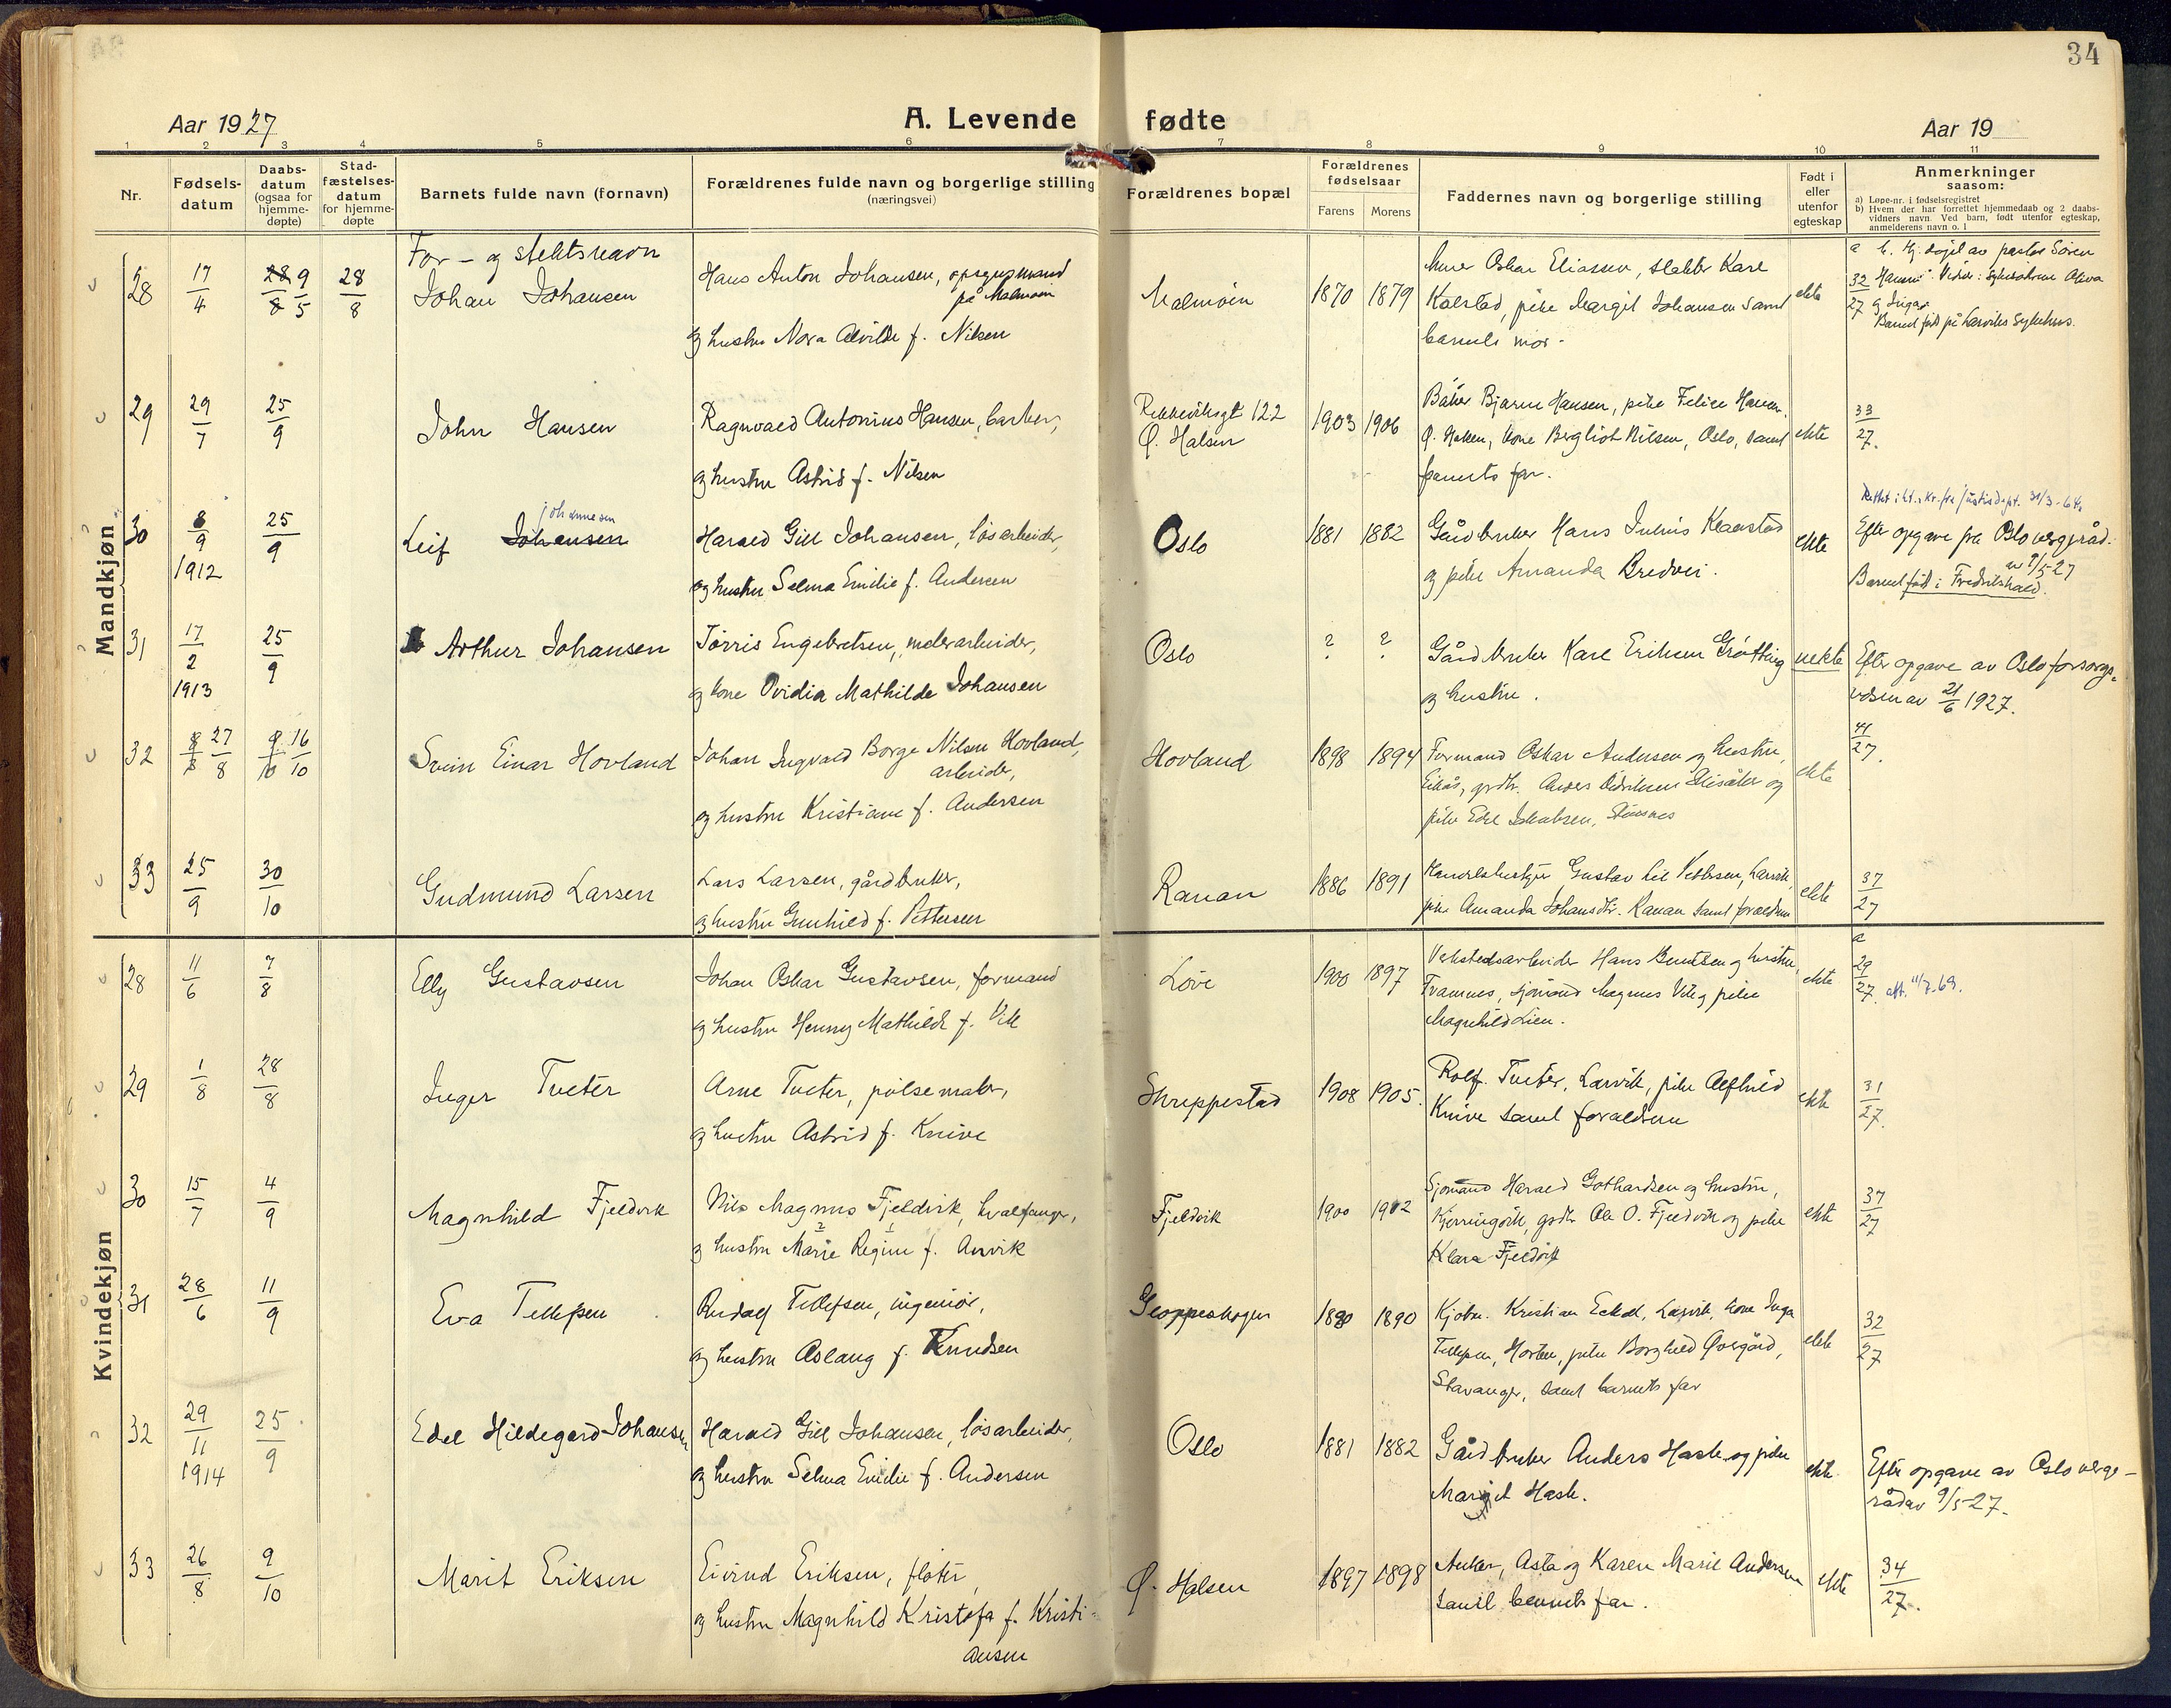 34
Aar 1927
A. Levende fødte
Aar 19
1 2 3 4 5 6 7 8 9 10 11
Nr.
Fødsels-
datum
Daabs-
datum
(ogsaa for
hjemme-
døpte)
Stad-
fæstelses-
datum
for hjemme-
døpte
Barnets fulde navn (fornavn)
Forældrenes fulde navn og borgerlige stilling
(næringsvei)
Forældrenes bopæl
Forældrenes
fødselsaar
Farens
Morens
Faddernes navn og borgerlige stilling
Født i
eller
utenfor
egteskap
Anmerkninger
saasom:
a) Løpe-nr. i fødselsregistret
b) Hvem der har forrettet hjemmedaab og 2 daabs-
vidners navn. Ved barn, født utenfor egteskap,
anmelderens navn o. l
Mandkjøn
For- og slektsnavn
28 17/4 28/8 9/5 28/8 Johan Johansen
Hans Anton Johansen, opsynsmand
på Malmøin
og hustru Nora Alvilde f. Nilsen
Malmøin 1870 1879
Murer Oskar Eliassen, slakter Karl
Kolstad, pike Margit Johansen samt
barnets mor.
ekte
a 32/27
Barnet født på Larviks sykehus.
29 29/7 25/9 John Hansen
Ragnvald Antonius Hansen, barber,
og hustru Astrid f. Nilsen
Rekkeviksgt 122
Ø. Halsen
1903 1906
Baker Bjarne Hansen, pike Felice Hansen
Ø. Halsen, kone Bergliot Nilsen, Oslo, samt
barnets far.
ekte
33/27.
30 8/9 1912 25/9 Leif Johansen
Johannesen
Harald Gill Johansen, løsarbeider,
og hustru Selma Emilie f. Andersen
Oslo 1881 1882
Gårdbruker Hans Julius Klaastad
og pike Amanda Bredvei.
ekte
31/3-64
Efter opgave fra Oslo vergeråd
av 9/5 27
Barnet født i Fredrikshald.
31 17/2 1913 25/9 Arthur Johansen
Tørris Engebretsen, malerarbeider,
og kone Ovidia Mathilde Johansen
Oslo ? ?
Gårdbruker Karl Eriksen Grøtting
og hustru.
uekte
Efter opgave av Oslo forsorgs-
vesen av 21/6 1927.
32 8/8 27/8 9/10 16/10 Svein Einar Hovland
Johan Ingvald Borge Nilsen Hovland,
arbeider,
og hustru Kristiane f. Andersen
Hovland 1898 1894
Formand Oskar Andersen og hustru,
Eikås, grdbr. Anders Didriksen
og
pike Edel Jakobsen,
ekte
41/27.
33 25/9 30/10 Gudmund Larsen
Lars Larsen, gårdbruker,
og hustru Gunhild f. Pettersen
Ranan 1886 1891
Gustav Pettersen, Larvik,
pike Amanda Johansdtr. Ranan samt forældrene
ekte
37/27
Kvindekjøn
28 11/6 7/8 Elly Gustavsen
Johan Oskar Gustavsen, formand
og hustru Henny Mathilde f. Vik
Løve 1900 1897
Verkstedsarbeider Hans Berntsen og hustru,
Framnes, sjømand Magnus Vik og pike
Magnhild Lien.
ekte
a 29/27. att. 11/7-69.
29 1/8 28/8 Inger Tveter
Arne Tveter, pølsemaker,
og hustru Astrid f. Knive
Skreppestad 1908 1905.
Rolf Tveter, Larvik, pike Alfhild
Knive samt forældrene
ekte
31/27.
30 15/7 4/9 Magnhild Fjeldvik
Nils Magnus Fjeldvik, hvalfanger,
og hustru Marie Regine f. Anvik
Fjeldvik 1900 1902
Sjømand Harald Gothardsen og hustru,
Kjerringvik, grdbr. Ole O. Fjeldvik og pike
Klara Fjeldvik
ekte
37/27
31 28/6 11/9 Eva Tellefsen
Rudolf Tellefsen, ingeniør,
og hustru Aslaug f. Knudsen
Gloppeskogen 1890 1890
Kjøbm. Kristian Eckdel, Larvik, kone Inga
Tellefsen, Horten, pike Borghild Øvregård,
Stavanger, samt barnets far
ekte
32/27
32 29/11 1914 25/9 Edel Hildegard Johansen
Harald Gill Johansen, løsarbeider,
og hustru Selma Emilie f. Andersen
Oslo 1881 1882
Gårdbruker Anders Hask og pike
Margit Hask.
ekte
Efter opgave av Oslo verge-
råd av 9/5-27.
33 26/8 9/10 Marit Eriksen
Eivind Eriksen, fløter,
og hustru Magnhild Kristofa f. Kristi-
ansen
Ø. Halsen 1897 1898
Anker, Asta og Karen Marie Andersen
samt barnets far.
ekte
34/27.